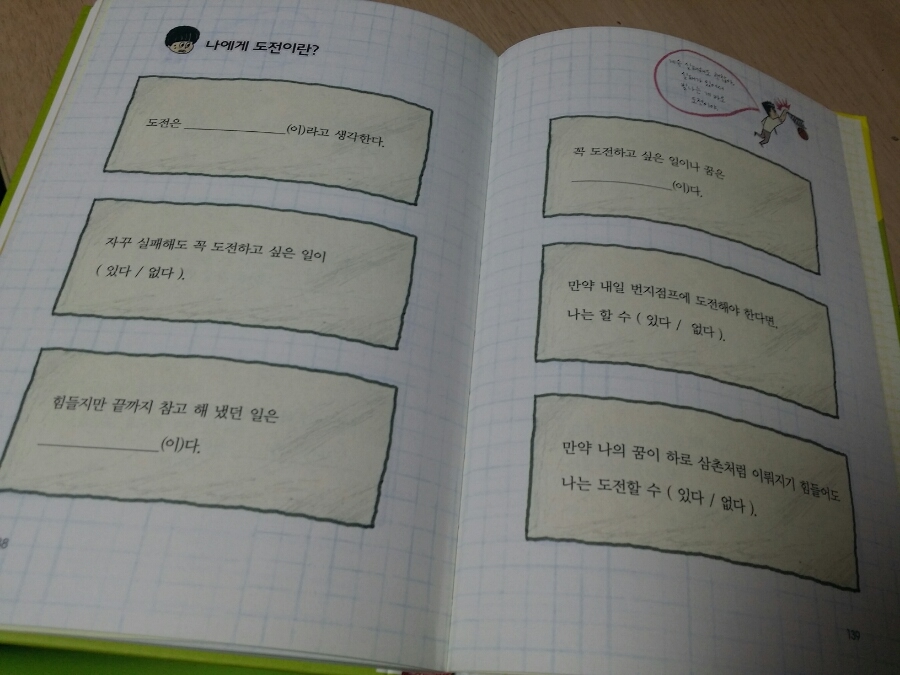 나에게 도전이란?
도전은 ____________(이)라고 생각한다.
자꾸 실패해도 꼭 도전하고 싶은 일이
( 있다 / 없다 ).
힘들지만 끝까지 참고 해 냈던 일은
______________(이)다.
꼭 도전하고 싶은 일이나 꿈은
____________(이)다.
만약 내일 번지점프에 도전해야 한다면,
나는 할 수 ( 있다 / 없다 ).
만약 나의 꿈이 하로 삼촌처럼 이뤄지기 힘들어도
나는 도전할 수 ( 있다 / 없다 ).
139